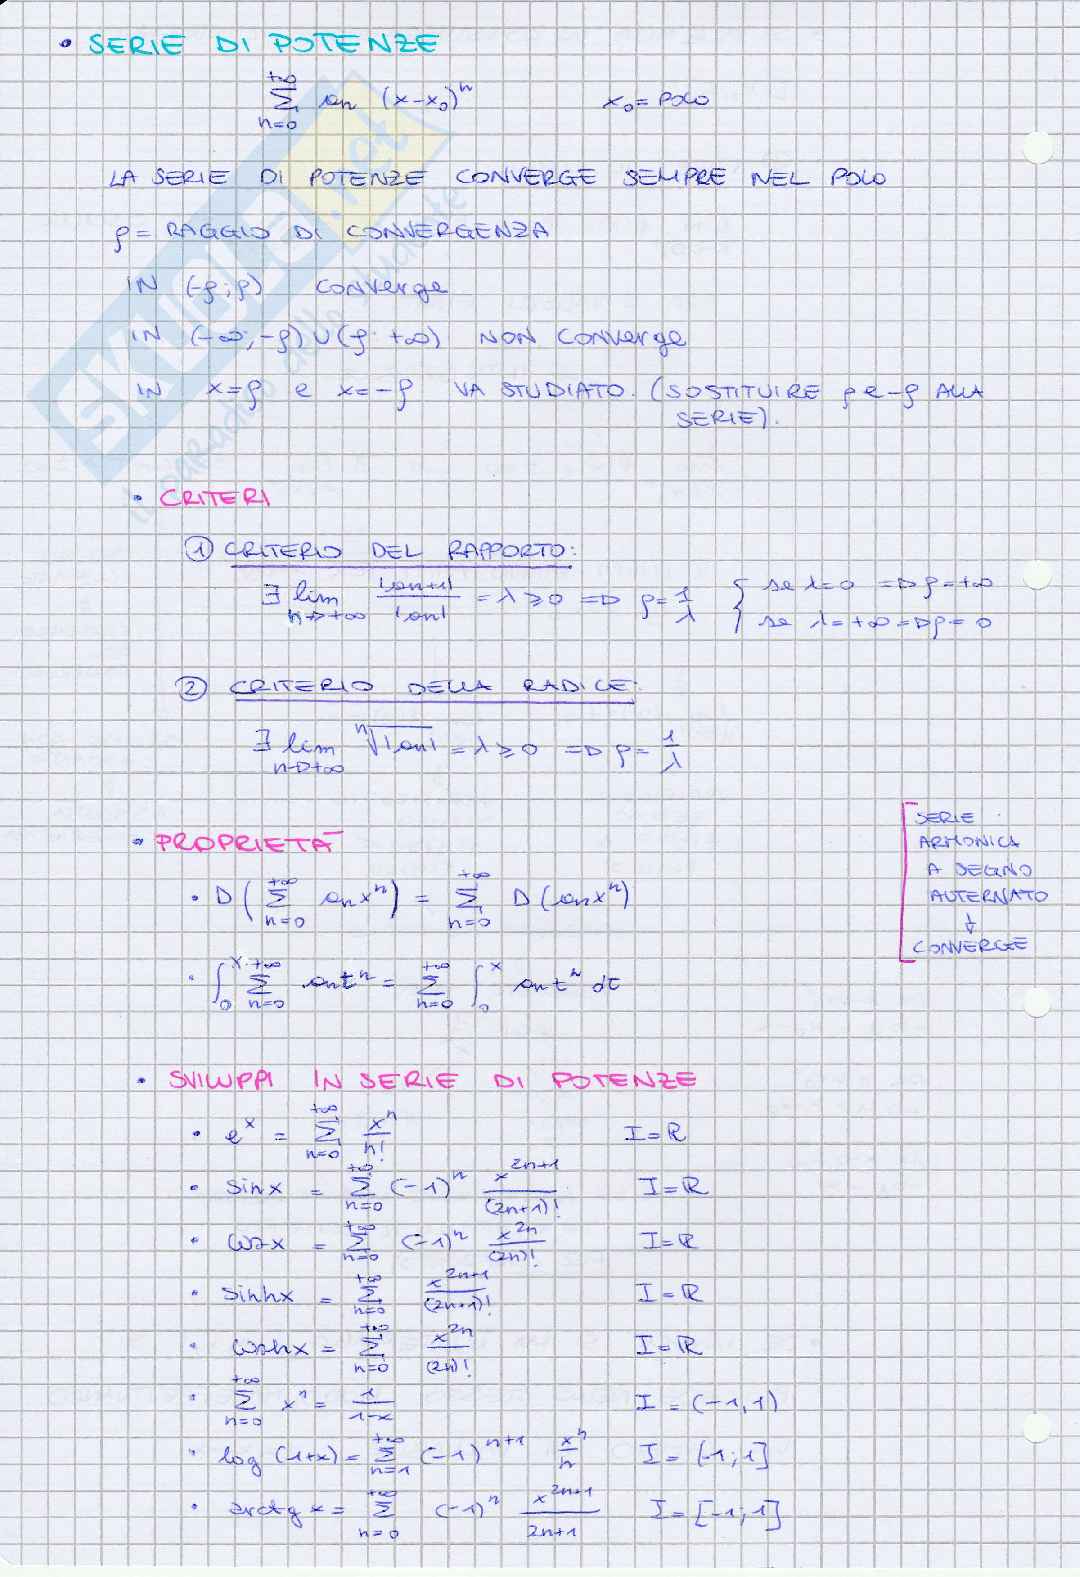 • SERIE DI POTENZE
+∞ Σ n=0 an (x-x₀)ⁿ x₀ = POLO
LA SERIE DI POTENZE CONVERGE SEMPRE NEL POLO
ρ = RAGGIO DI CONVERGENZA
IN (-ρ;ρ) converge
IN (-∞;-ρ)∪(ρ; +∞) NON converge
IN x=ρ e x=-ρ VA STUDIATO. (SOSTITUIRE ρ e -ρ ALLA
SERIE).
• CRITERI
① CRITERIO DEL RAPPORTO:
∃ lim n→+∞ |an+1|/|an| = λ ≥ 0 => ρ = 1/λ { se λ=0 => ρ=+∞
se λ=+∞ => ρ=0
② CRITERIO DELLA RADICE:
∃ lim n→+∞ ⁿ√|an| = λ ≥ 0 => ρ = 1/λ
• PROPRIETÀ
• D( +∞ Σ n=0 an xⁿ) = +∞ Σ n=0 D(an xⁿ)
• ∫₀ˣ +∞ Σ n=0 an tⁿ = +∞ Σ n=0 ∫₀ˣ an tⁿ dt
SERIE
ARMONICA
A SEGNO
ALTERNATO
↓
CONVERGE
• SVILUPPI IN SERIE DI POTENZE
• eˣ = +∞ Σ n=0 xⁿ/n! I=ℝ
• sinx = +∞ Σ n=0 (-1)ⁿ x²ⁿ⁺¹/(2n+1)! I=ℝ
• cosx = +∞ Σ n=0 (-1)ⁿ x²ⁿ/(2n)! I=ℝ
• sinhx = +∞ Σ n=0 x²ⁿ⁺¹/(2n+1)! I=ℝ
• coshx = +∞ Σ n=0 x²ⁿ/(2n)! I=ℝ
• +∞ Σ n=0 xⁿ = 1/1-x I = (-1,1)
• log (1+x) = +∞ Σ n=1 (-1)ⁿ⁺¹ xⁿ/n I = (-1;1]
• arctg x = +∞ Σ n=0 (-1)ⁿ x²ⁿ⁺¹/2n+1 I = [-1;1]
SKUOLA.net